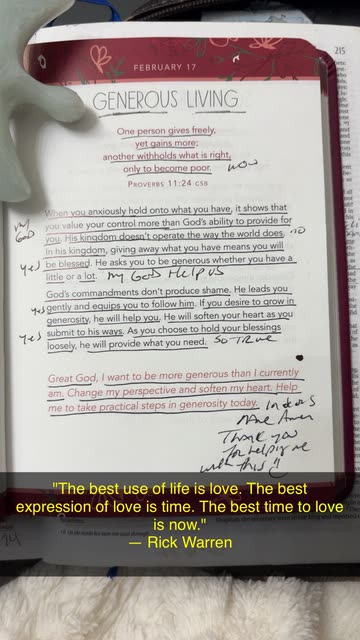 215
FEBRUARY 17
GENEROUS LIVING
One person gives freely,
yet gains more;
another withholds what is right,
only to become poor. wow
PROVERBS 11:24 CSB
my
God
When you anxiously hold onto what you have, it shows that
you value your control more than God's ability to provide for
you. His kingdom doesn't operate the way the world does.
In his kingdom, giving away what you have means you will
yes be blessed. He asks you to be generous whether you have a
little or a lot. my God Help us
God's commandments don't produce shame. He leads you
yes gently and equips you to follow him. If you desire to grow in
generosity, he will help you. He will soften your heart as you
yes submit to his ways. As you choose to hold your blessings
loosely, he will provide what you need. So True
Great God, I want to be more generous than I currently
am. Change my perspective and soften my heart. Help
me to take practical steps in generosity today. In Jesus
Name Amen
Thank you
for helping me
with this !!
"The best use of life is love. The best
expression of love is time. The best time to love
is now."
— Rick Warren